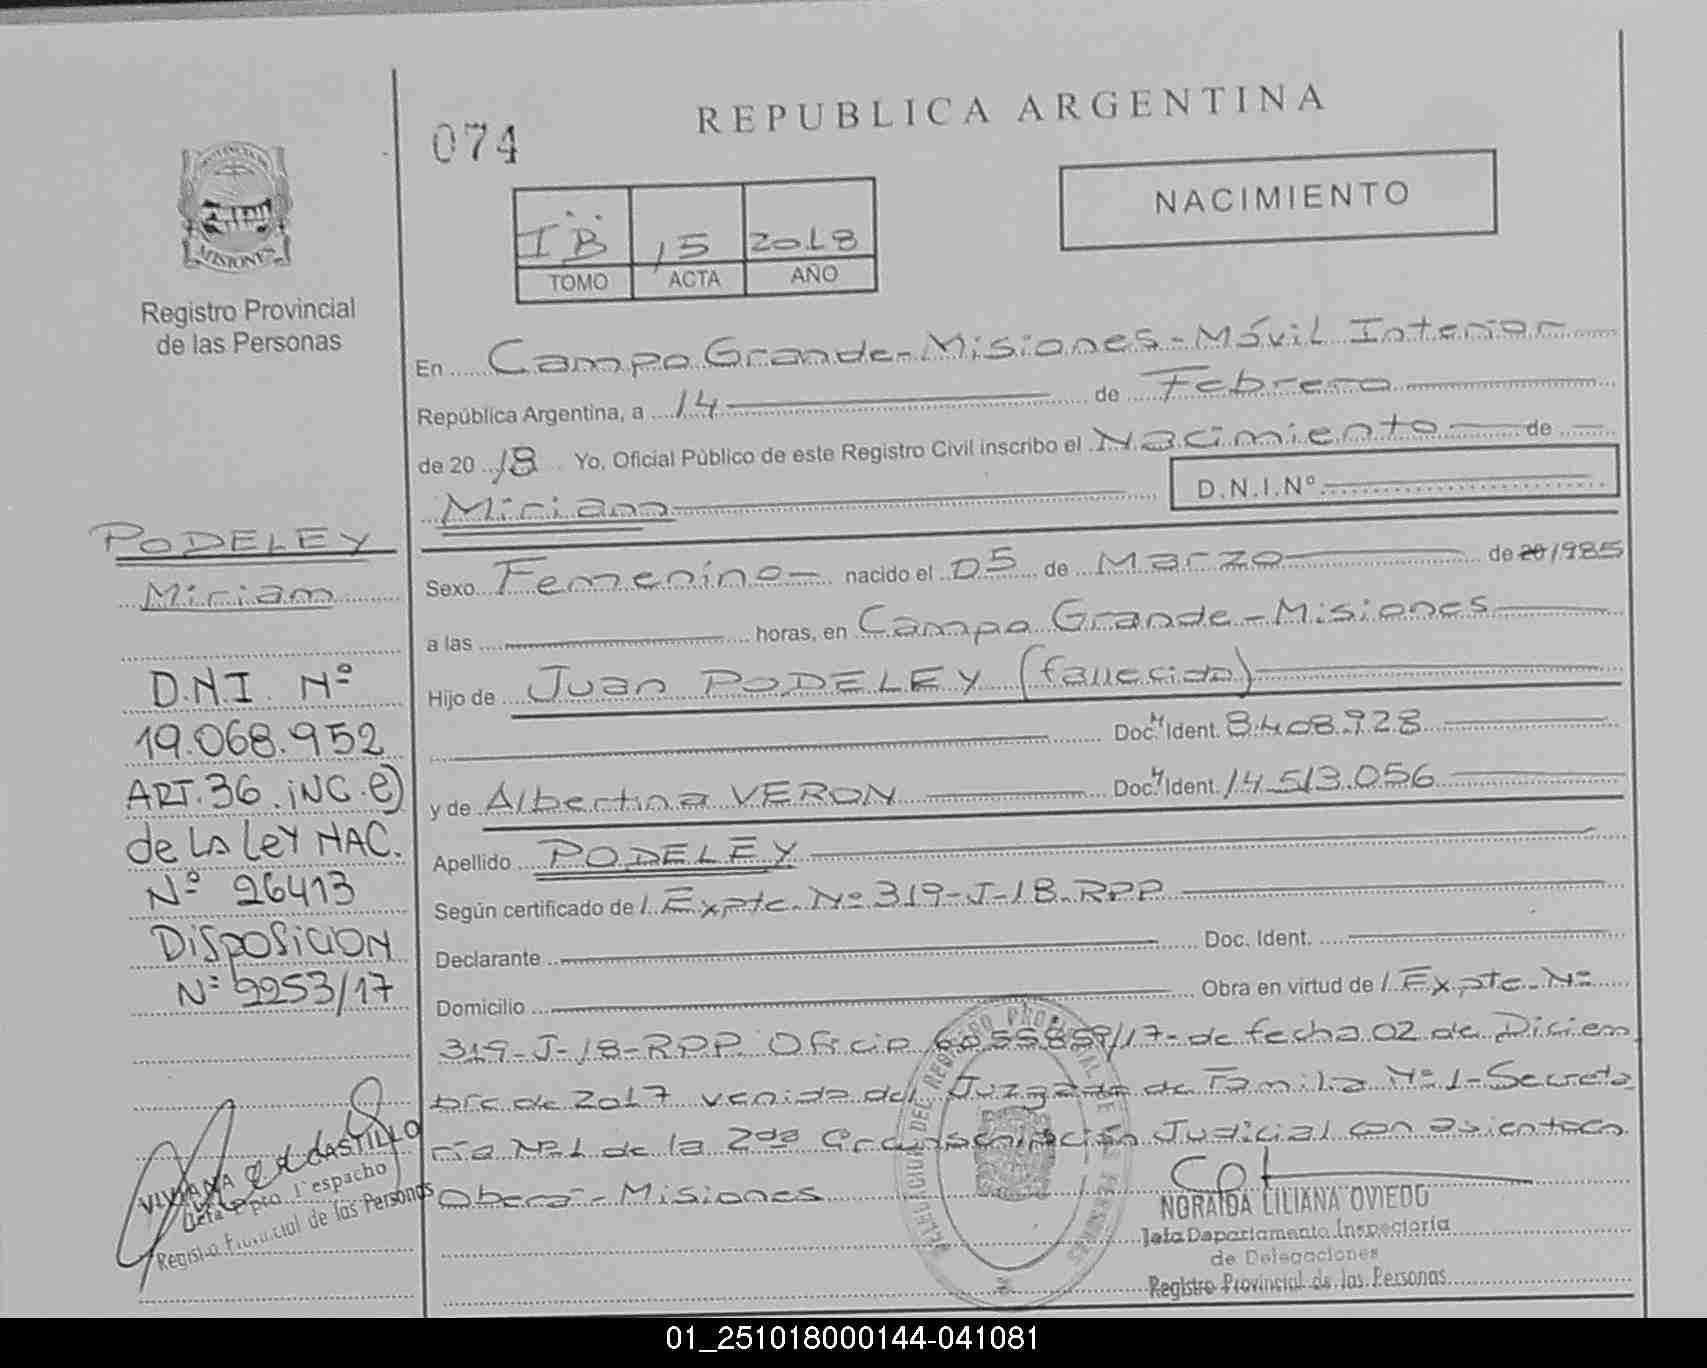 REPUBLICA ARGENTINA
074
NACIMIENTO
PROVINCIA DE
MISIONES
IB 15 2018
TOMO ACTA AÑO
Registro Provincial
de las Personas
En Campo Grande - Misiones - Móvil Interior
República Argentina, a 14 de Febrero
de 20 18 Yo, Oficial Público de este Registro Civil inscribo el Nacimiento de
Miriam D.N.I.Nº
PODELEY
Miriam
D.N.I. Nº
19.068.952
ART. 36. iNC. e)
de LA LeY NAC.
Nº 26413
DISPOSICION
Nº 2253/17
Sexo Femenino nacido el 05 de Marzo de 20 1985
a las horas, en Campo Grande - Misiones
Hijo de Juan PODELEY (fallecido)
Doc. M Ident. 8.408.928
y de Albertina VERON Doc. Ident. 14.513.056
Apellido PODELEY
Según certificado de / Expte. Nº 319-J-18-RPP
Declarante Doc. Ident.
Domicilio Obra en virtud de / Expte. Nº
319-J-18-RPP. Oficio 6055859/17 - de fecha 02 de Diciem
bre de 2017 venido del Juzgado de Familia Nº 1 - Secreta
ría Nº 1 de la 2da Circunscripción Judicial con asiento en
Oberá - Misiones
VIVIANA DEL CASTILLO
Jefa Dpto. Despacho
Registro Provincial de las Personas
NORAIDA LILIANA OVIEDO
Jefa Departamento Inspectoría
de Delegaciones
Registro Provincial de las Personas
01_251018000144-041081